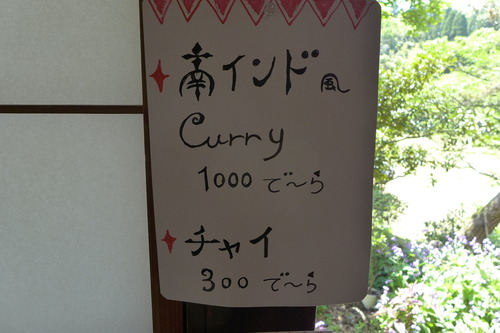 南インド風
Curry
1000 で〜ら
チャイ
300 で〜ら